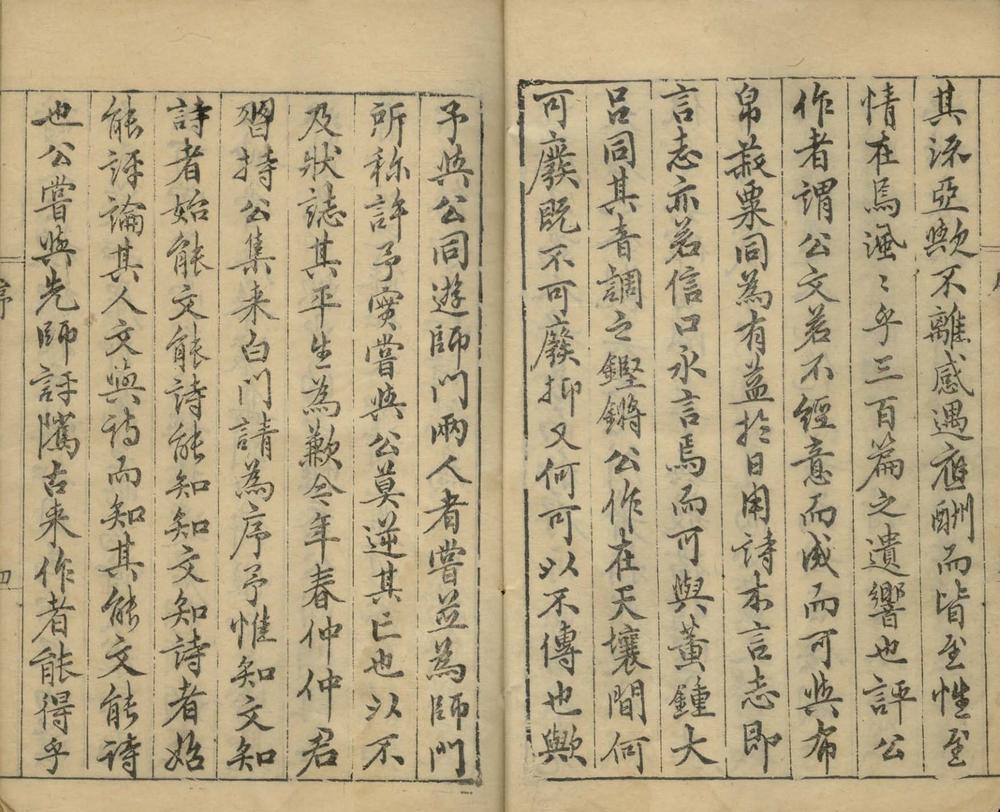 其流亞歟不離感遇應酬而皆至性至
情在焉渢〻乎三百篇之遺響也評公
作者謂公文若不經意而成而可與布
帛菽粟同為有益於日用詩本言志即
言志亦若信口永言焉而可與黃鍾大
呂同其音調之鏗鏘公作在天壤間何
可廢既不可廢抑又何可以不傳也歟
予與公同遊師門兩人者嘗並為師門
所称許予實嘗與公莫逆其亡也以不
及狀誌其平生為歉今年春仲仲君
習持公集来白門請為序予惟知文知
詩者始能文能詩能知知文知詩者始
能評論其人文與詩而知其能文能詩
也公嘗與先師評騭古来作者能得乎
序
四